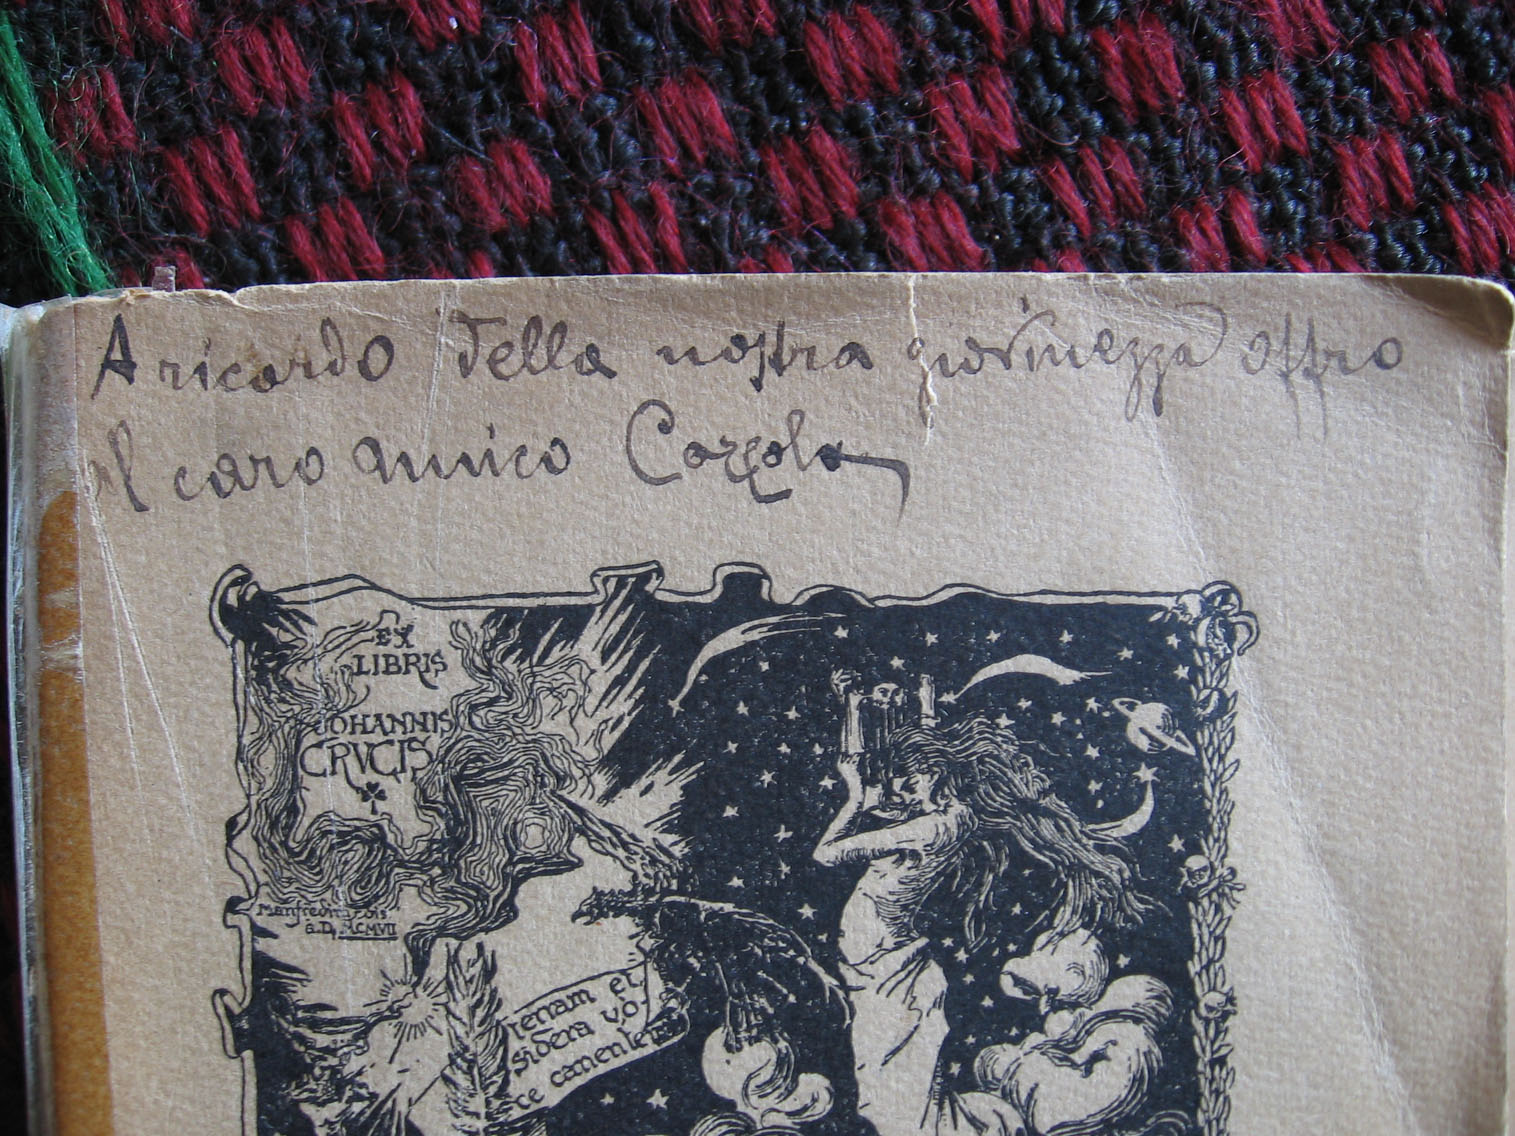 A ricordo della nostra giovinezza offro
al caro amico
EX
LIBRIS
JOHANNIS
CRVCIS
a.D. MCMVII
terram et
sidera vo-
ce canente